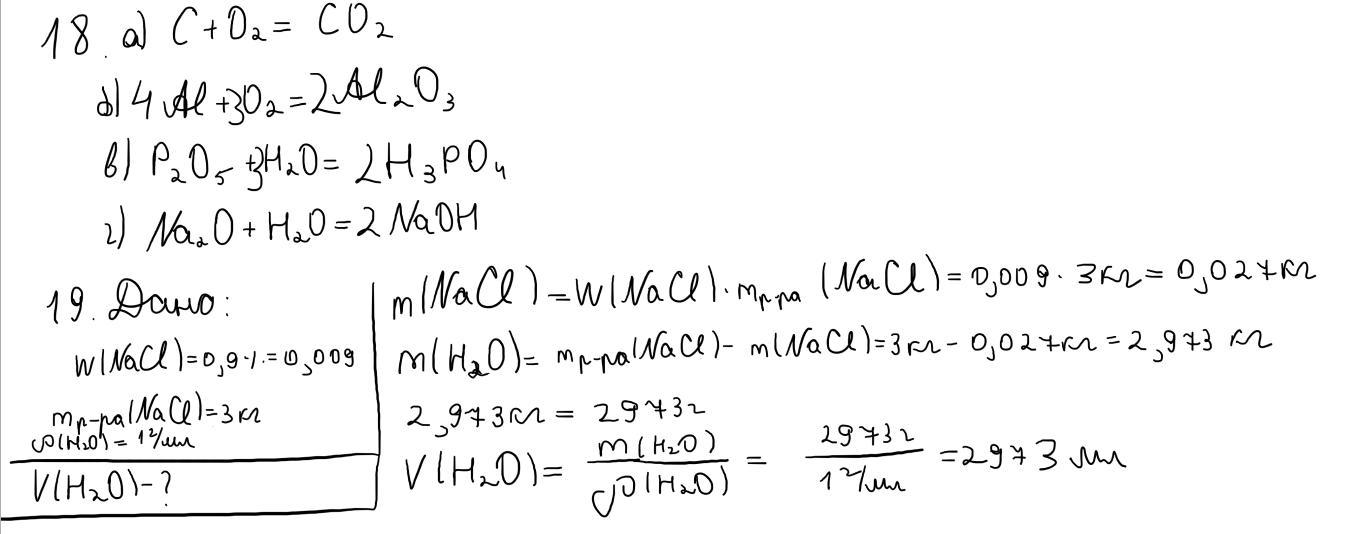 18. а) C + O₂ = CO₂
б) 4Al + 3O₂ = 2Al₂O₃
в) P₂O₅ + 3H₂O = 2H₃PO₄
г) Na₂O + H₂O = 2NaOH
19. Дано:
W(NaCl) = 0,9% = 0,009
m р-ра (NaCl) = 3 кг
ρ(H₂O) = 1 г/мл
V(H₂O) - ?
m(NaCl) = W(NaCl) · m р-ра (NaCl) = 0,009 · 3 кг = 0,027 кг
m(H₂O) = m р-ра (NaCl) - m(NaCl) = 3 кг - 0,027 кг = 2,973 кг
2,973 кг = 2973 г
V(H₂O) = m(H₂O) / ρ(H₂O) = 2973 г / 1 г/мл = 2973 мл